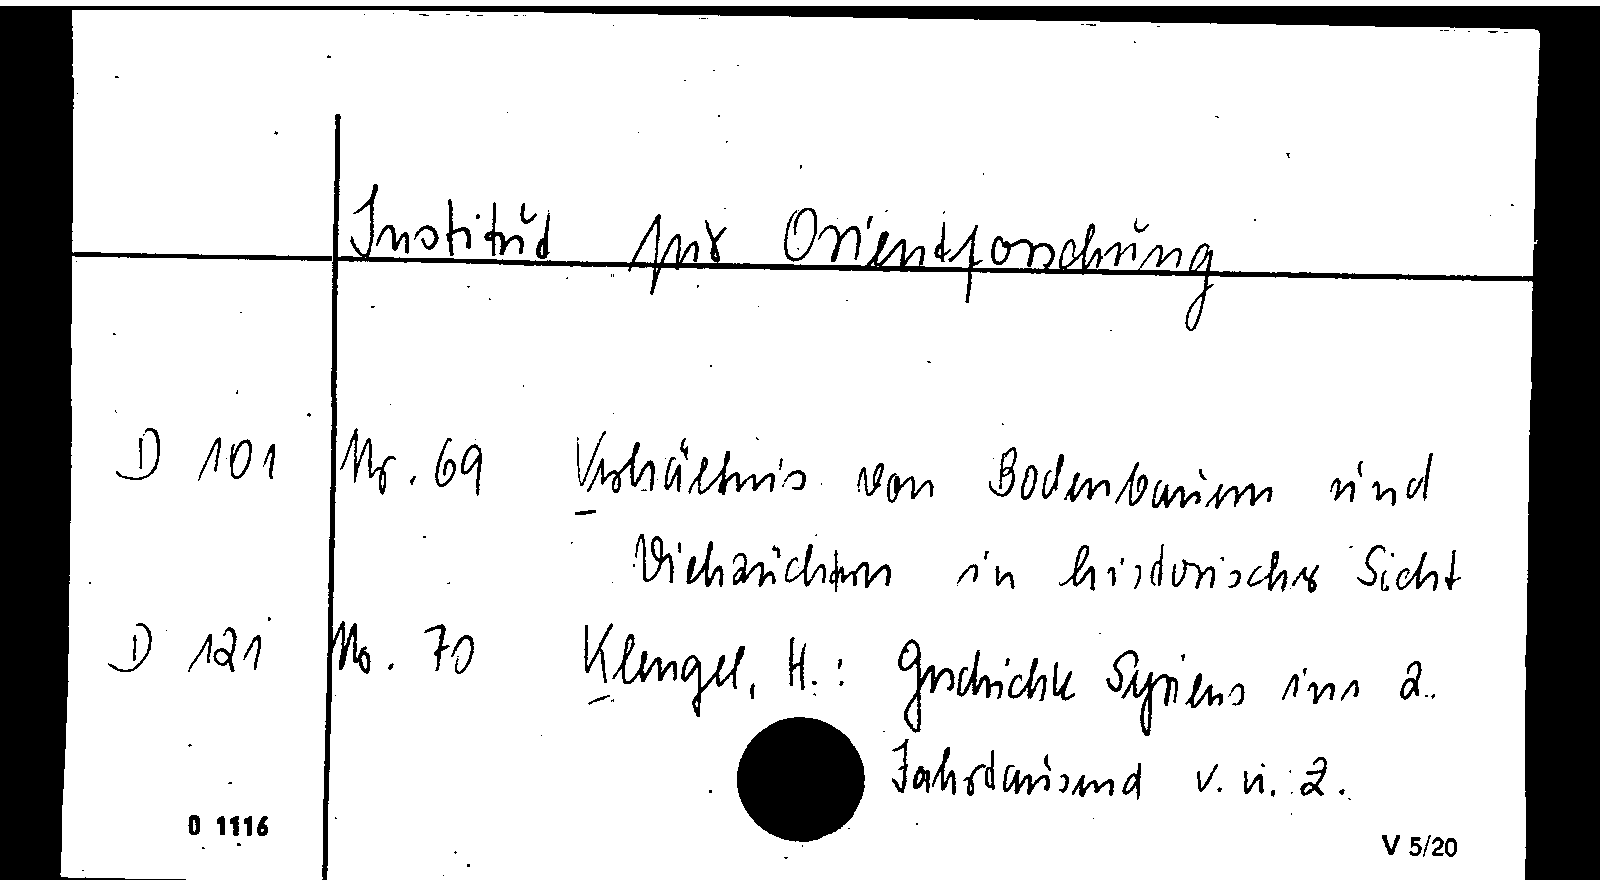 Institut für Orientforschung
D 101 Nr. 69 Verhältnis von Bodenbauern und
Viehzüchtern in historischer Sicht
D 121 Nr. 70 Klengel, H.: Geschichte Syriens im 2.
Jahrtausend v. u. Z.
D 1116
V 5/20